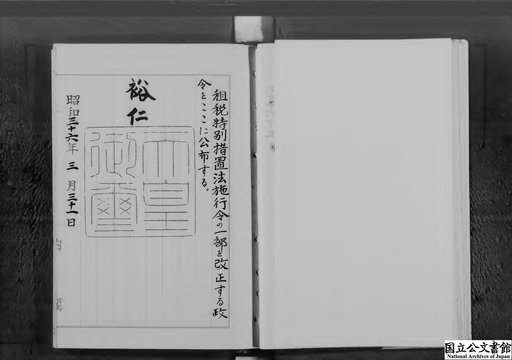 租税特別措置法施行令の一部を改正する政
令をここに公布する。
裕仁
天皇
御璽
昭和三十六年三月三十一日
国立公文書館
National Archives of Japan